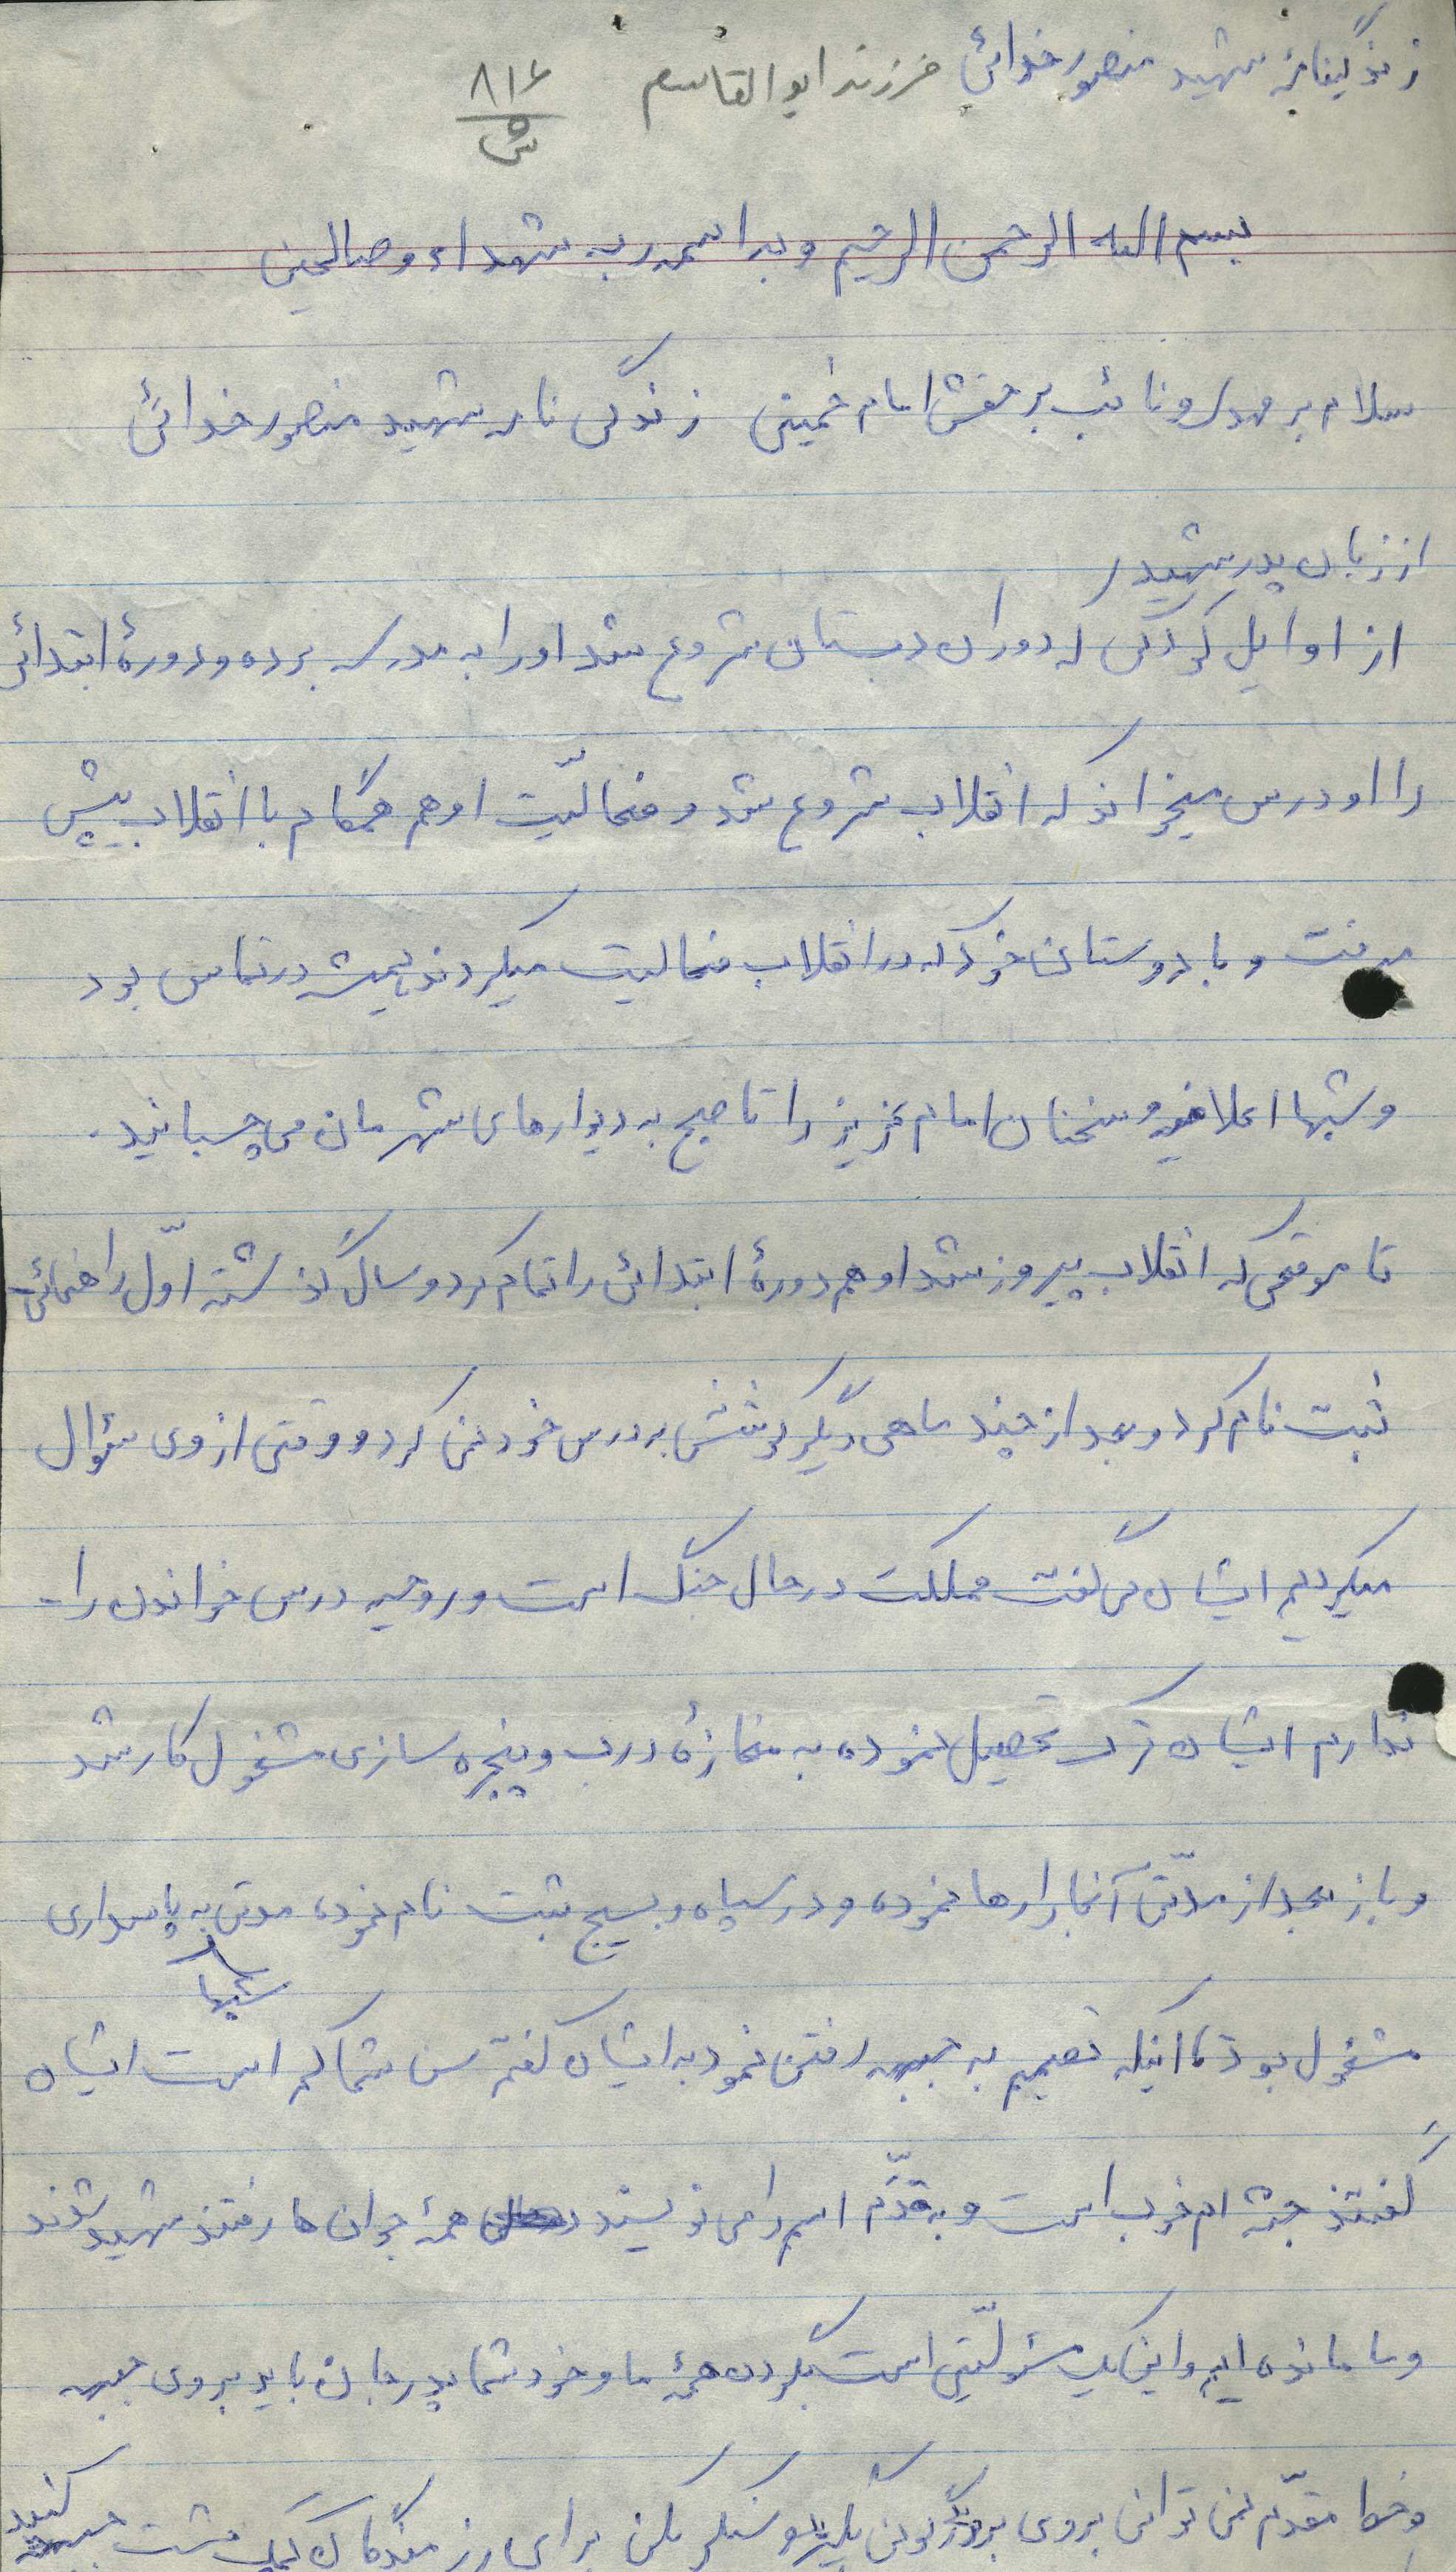 زندگینامه شهید منصور خدائی فرزند ابوالقاسم ۸۱۶
ش
بسم الله الرحمن الرحیم و به اسم رب شهداء و صالحین
سلام بر مهدی و نائب بر حقش امام خمینی زندگی نامه شهید منصور خدائی
از زبان پدر شهید
از اوایل کودکی که دوران دبستان شروع شد او را به مدرسه برده و دورهٔ ابتدائی
را او درس میخواند که انقلاب شروع شد و فعالیّت او هم همگام با انقلاب پیش
میرفت و با دوستان خود که در انقلاب فعالیت میکردند همیشه در تماس بود
و شبها اعلامیه و سخنان امام عزیز را تا صبح به دیوارهای شهرمان می چسبانید.
تا موقعی که انقلاب پیروز شد او هم دورهٔ ابتدائی را تمام کرد و سال گذشته اوّل راهنمائی
ثبت نام کرد و بعد از چند ماهی دیگر کوشش به درس خود نمی کرد و وقتی از وی سؤال
میکردیم ایشان می گفت مملکت در حال جنگ است و روحیه درس خواندن را-
ندارم ایشان ترک تحصیل نموده به مغازهٔ درب و پنجره سازی مشغول کار شد
و باز بعد از مدّتی آنجا را رها نموده و در سپاه و بسیج ثبت نام نموده مدتی به پاسداری
شبها
مشغول بود تا اینکه تصمیم به جبهه رفتن نمود به ایشان گفتم سن شما کم است ایشان
گفتند جثه ام خوب است و به قدّم اسم را می نویسند همهٔ جوان ها رفتند شهید شوند
و ما مانده ایم و این یک مسئولیّتی است بگردن همهٔ ما و خود شما پدر جان باید بروی جبهه
و خط مقدّم نمی توانی بروی برو گونی بگیر و سنگر بکن برای رزمندگان کمک پشت جبهه کنید